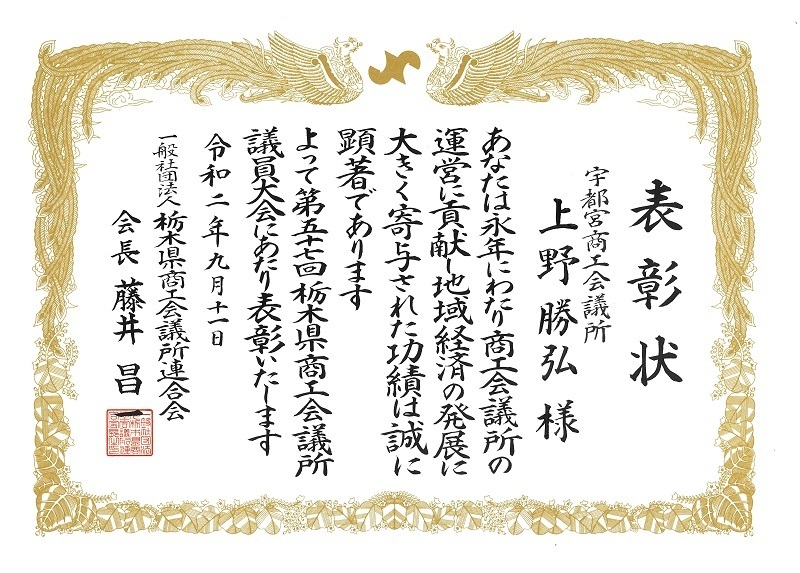 表彰状
宇都宮商工会議所
上野勝弘様
あなたは永年にわたり商工会議所の
運営に貢献し地域経済の発展に
大きく寄与された功績は誠に
顕著であります
よって第五十七回栃木県商工会議所
議員大会にあたり表彰いたします
令和二年九月十一日
一般社団法人栃木県商工会議所連合会
会長藤井昌一